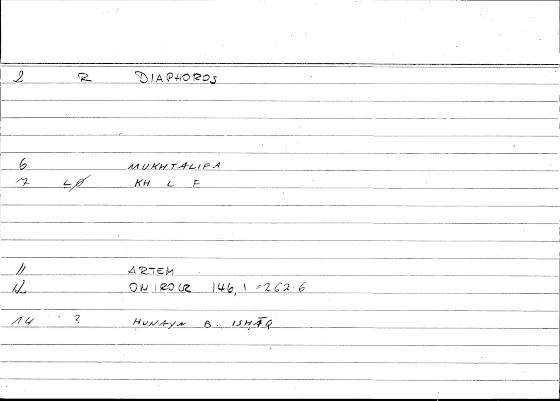 2 R DIAPHOROS
6 MUKHTALIFA
7 LØ KH L F
11 ARTEM
12 ONIROCR 146, 1 = 262.6
14 ? HUNAYN B. ISḤĀQ